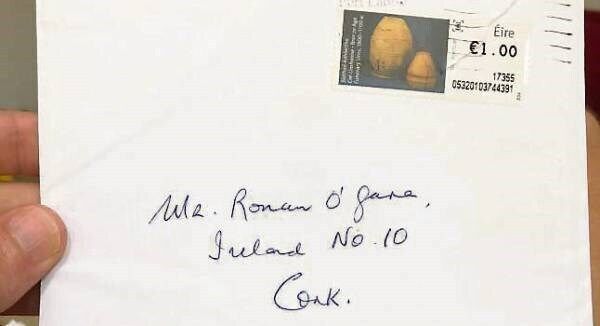 Éire
€1.00
17355
05320103744391
Mr. Ronan O'Gara,
Ireland No.10
Cork.